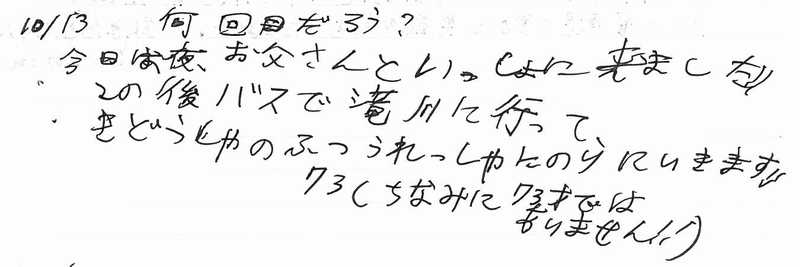 10/13 何回目だろう?
今日は夜、お父さんといっしょに来ました!!
この後バスで滝川に行って、
きどうしゃのふつうれっしゃにのりにいきます!!
73(ちなみに73才では
ありません!!)